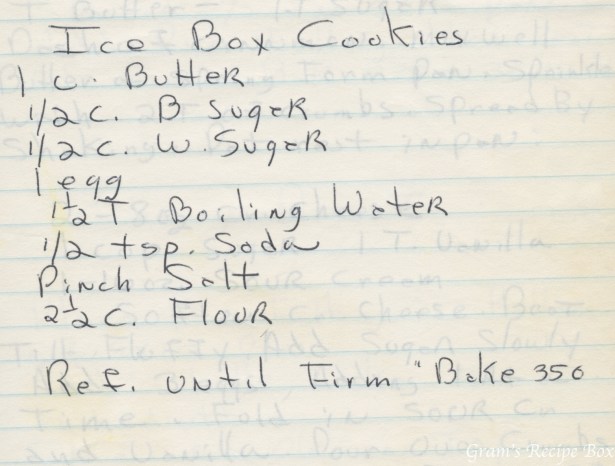 Ice Box Cookies
1 c. Butter
1/2 c. B Sugar
1/2 c. W. Sugar
1 egg
1 1/2 T Boiling Water
1/2 tsp. Soda
Pinch Salt
2 1/2 c. Flour
Ref. until Firm " Bake 350
Gram's Recipe Box